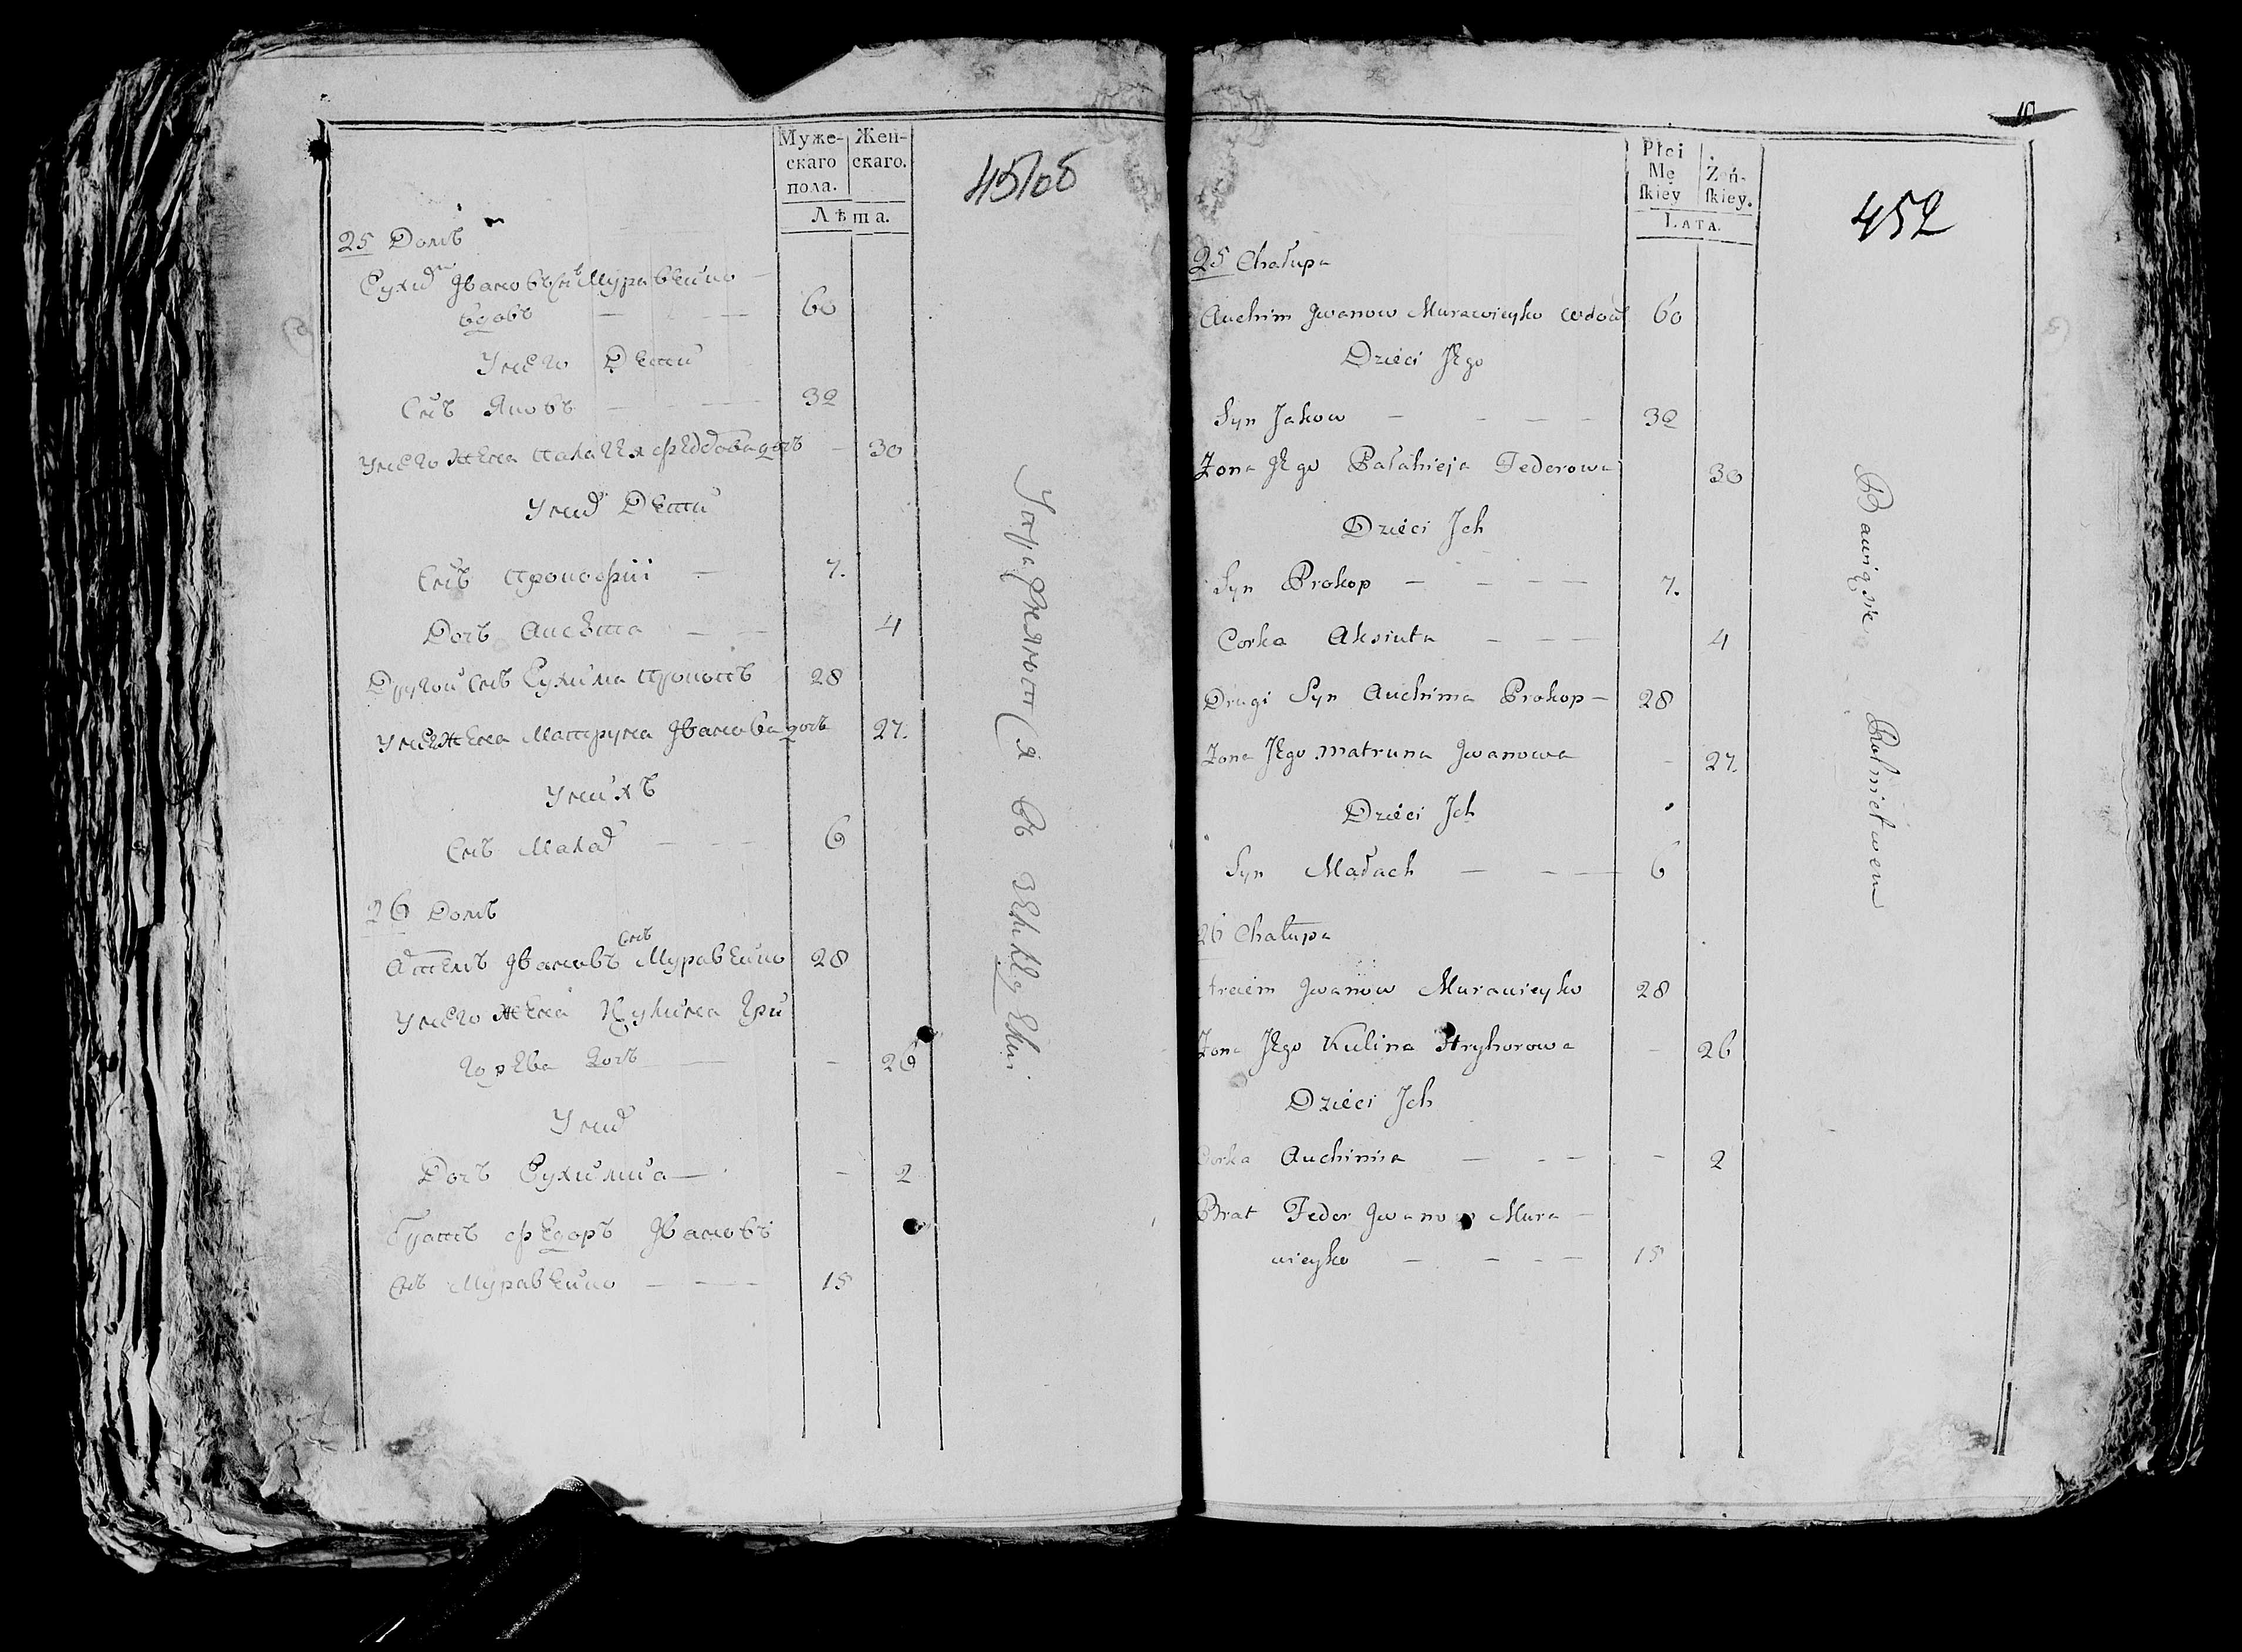 Муже-
скаго
пола.
Жен-
скаго.
Лѣта.
451об
25 Домъ
Еухим Ивановъ снъ Муравеико
вдовъ — — — 60
У него Дети
Снъ Яковъ — — — 32
У него жена палагея федорова дочъ — 30
У них Дети
Снъ прокофии — 7.
Дочъ Аксюта — — 4
Другои снъ Еухима прокопъ 28
У него жена Матруна Иванова дочъ 27.
У нихъ
Снъ Малах — — — 6
26 Домъ
Артемъ Ивановъ снъ Муравеико 28
У него жена Кулина Гри
горева дочъ — — 26
У них
Дочъ Еухимия — — 2
братъ федоръ Ивановъ
снъ Муравеико — — — 15
Упражняются въ земледелии
Płci
Mę
ſkiey
Żeń-
ſkiey.
LATA.
10
452
25 Chałupa
Auchim Jwanow Murawieyko wdow 60
Dzieci Jego
Syn Jakow — — — — 32
Zona Jego Pałahieja Federowa 30
Dzieci Jch
Syn Prokop — — — — 7.
Corka Aksiuta — — — 4
Drugi Syn Auchima Prokop — 28
Zona Jego Matruna Jwanowa — 27.
Dzieci Jch
Syn Małach — — — 6
26 Chałupa
Arciem Jwanow Murawieyko 28
Zona Jego Kulina Hryhorowa — 26
Dzieci Jch
Corka Auchimia — — — — 2
Brat Feder Jwanow Mura —
wieyko — — — — 15
Bawią się Rolnictwem